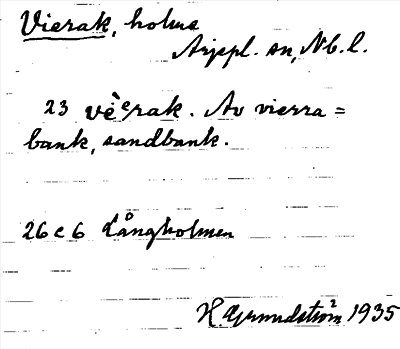 Vierak, holme
Arjepl. sn, Nb. l.
23 vèᵉrak. Av vierra =
bank, sandbank.
26 c 6 Långholmen
H. Grundström 1935